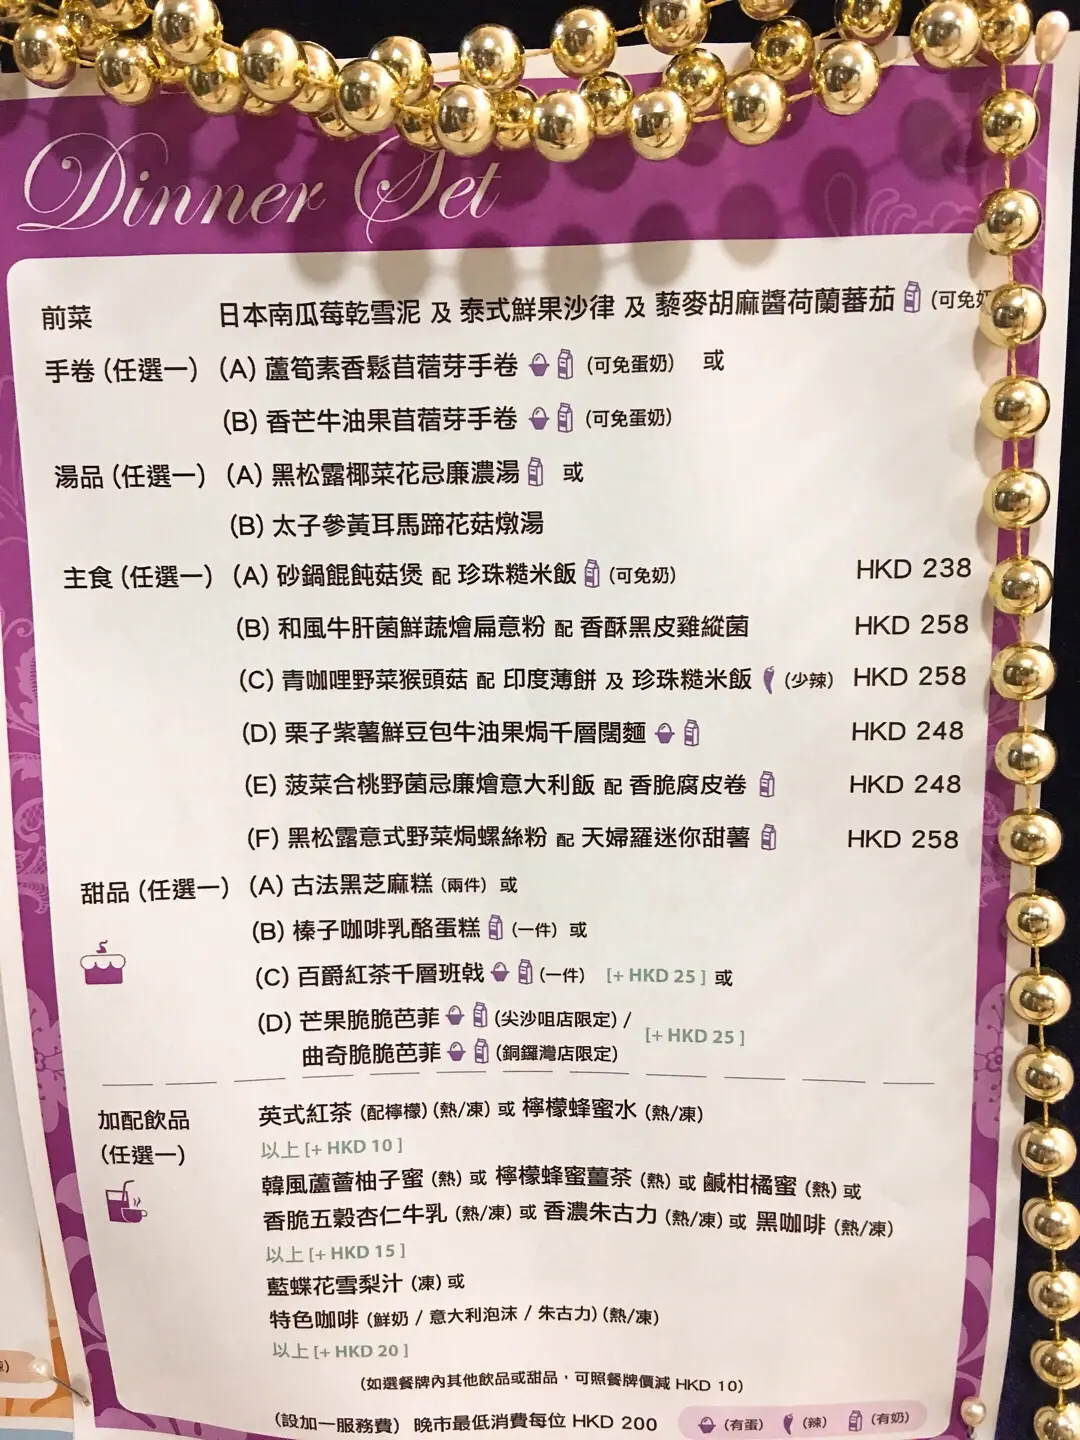 Dinner Set
前菜 日本南瓜莓乾雪泥 及 泰式鮮果沙律 及 藜麥胡麻醬荷蘭蕃茄 (可免奶
手卷 (任選一) (A) 蘆筍素香鬆苜蓿芽手卷 (可免蛋奶) 或
(B) 香芒牛油果苜蓿芽手卷 (可免蛋奶)
湯品 (任選一) (A) 黑松露椰菜花忌廉濃湯 或
(B) 太子參黃耳馬蹄花菇燉湯
主食 (任選一) (A) 砂鍋餛飩菇煲 配 珍珠糙米飯 (可免奶) HKD 238
(B) 和風牛肝菌鮮蔬燴扁意粉 配 香酥黑皮雞縱菌 HKD 258
(C) 青咖喱野菜猴頭菇 配 印度薄餅 及 珍珠糙米飯 (少辣) HKD 258
(D) 栗子紫薯鮮豆包牛油果焗千層闊麵 HKD 248
(E) 菠菜合桃野菌忌廉燴意大利飯 配 香脆腐皮卷 HKD 248
(F) 黑松露意式野菜焗螺絲粉 配 天婦羅迷你甜薯 HKD 258
甜品 (任選一) (A) 古法黑芝麻糕 (兩件) 或
(B) 榛子咖啡乳酪蛋糕 (一件) 或
(C) 百爵紅茶千層班戟 (一件) [+ HKD 25 ] 或
(D) 芒果脆脆芭菲 (尖沙咀店限定) / [+ HKD 25 ]
曲奇脆脆芭菲 (銅鑼灣店限定)
加配飲品 英式紅茶 (配檸檬) (熱/凍) 或 檸檬蜂蜜水 (熱/凍)
(任選一) 以上 [+ HKD 10 ]
韓風蘆薈柚子蜜 (熱) 或 檸檬蜂蜜薑茶 (熱) 或 鹹柑橘蜜 (熱) 或
香脆五穀杏仁牛乳 (熱/凍) 或 香濃朱古力 (熱/凍) 或 黑咖啡 (熱/凍)
以上 [+ HKD 15 ]
藍蝶花雪梨汁 (凍) 或
特色咖啡 (鮮奶 / 意大利泡沫 / 朱古力) (熱/凍)
以上 [+ HKD 20 ]
(如選餐牌內其他飲品或甜品，可照餐牌價減 HKD 10)
(設加一服務費) 晚市最低消費每位 HKD 200 (有蛋) (辣) (有奶)